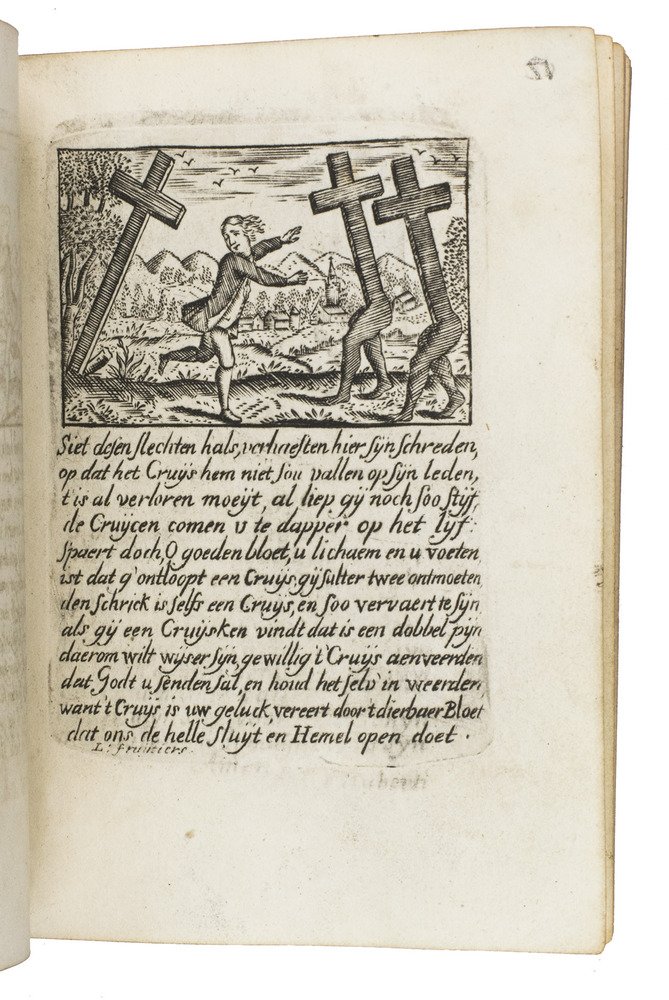 12
Siet desen slechten hals, verhaesten hier sijn schreden,
op dat het Cruijs hem niet sou vallen op sijn leden,
t'is al verloren moeijt, al liep gij noch soo stijf,
de Cruijcen comen u te dapper op het lijf:
spaert doch, O goeden bloet, u lichaem en u voeten,
ist dat g'ontloopt een Cruijs, gij sulter twee ontmoeten,
den schrick is selfs een Cruijs, en soo vervaert te sijn
als gij een Cruijsken vindt dat is een dobbel pijn
daerom wilt wijser sijn, gewillig 't Cruijs aenveerden
dat Godt u senden sal, en houd het selv' in weerden
want 't Cruijs is uw geluck, vereert door t dierbaer Bloet
dat ons de helle sluijt en Hemel open doet.
L: fruijtiers.